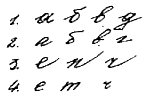 1. а б в д
2. а б в г
3. е п г
4. е т г